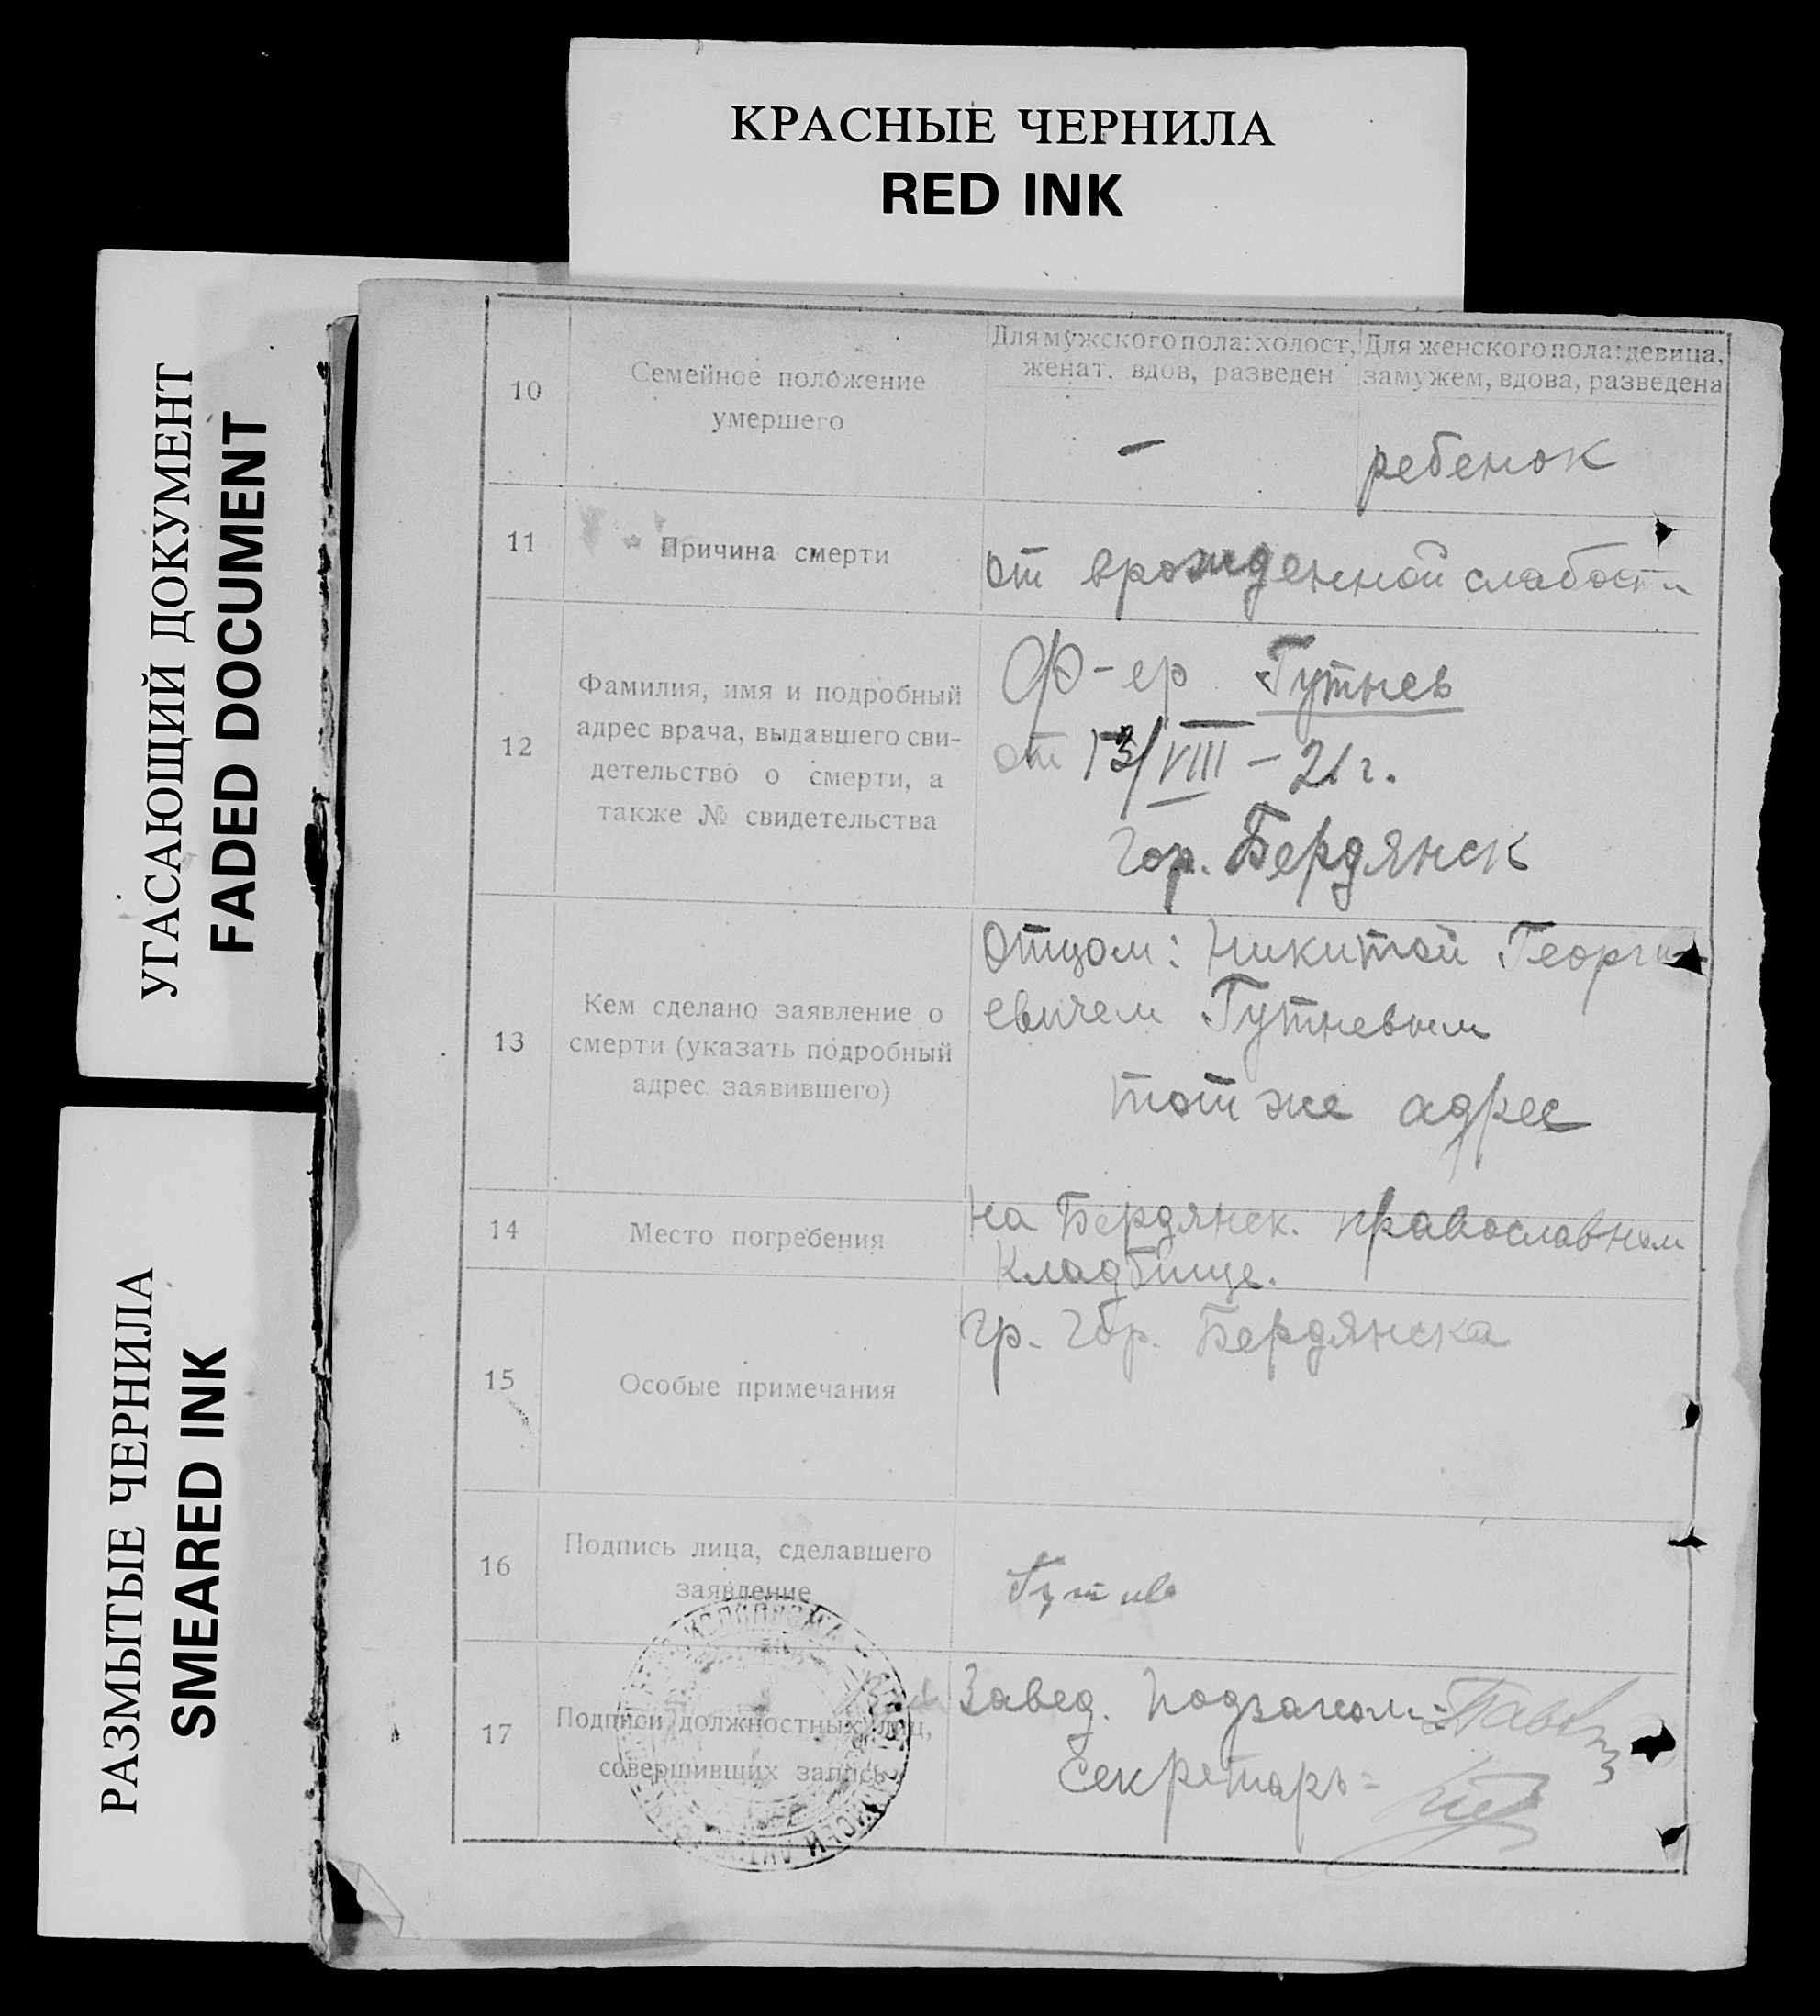 КРАСНЫЕ ЧЕРНИЛА
RED INK
УГАСАЮЩИЙ ДОКУМЕНТ
FADED DOCUMENT
РАЗМЫТЫЕ ЧЕРНИЛА
SMEARED INK
10
Семейное положение
умершего
Для мужского пола: холост,
женат, вдов, разведен
Для женского пола: девица,
замужем, вдова, разведена
—
ребенок
11
Причина смерти
от врожденной слабости
12
Фамилия, имя и подробный
адрес врача, выдавшего сви-
детельство о смерти, а
также № свидетельства
Ф-ер Гутнев
от 13/VIII – 21 г.
гор. Бердянск
13
Кем сделано заявление о
смерти (указать подробный
адрес заявившего)
Отцом: Никитой Георги
евичем Гутневым
тот же адрес
14
Место погребения
на Бердянск. православном
кладбище.
15
Особые примечания
гр. гор. Бердянска
16
Подпись лица, сделавшего
заявление
17
Подписи должностных лиц,
совершивших запись
Завед.
Секретарь